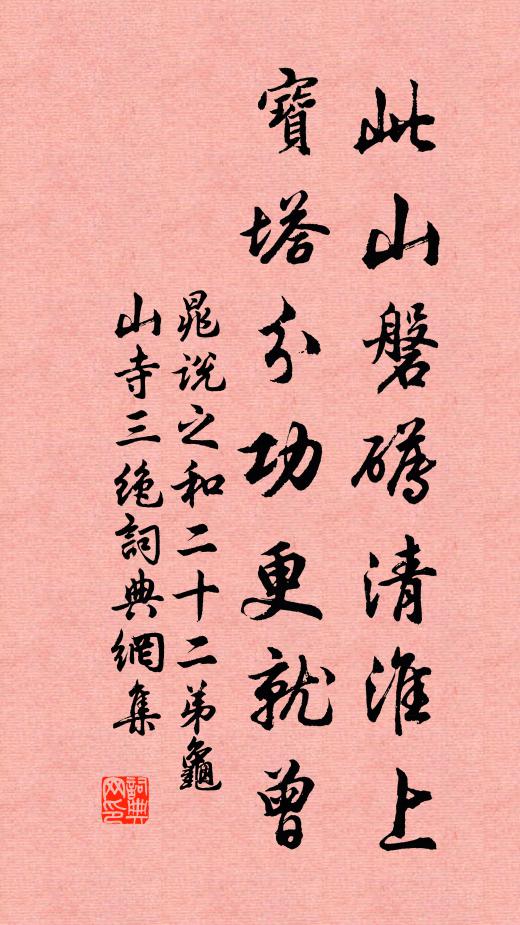 此山磐礴清淮上
寶塔分功更就曾
晁說之和二十二弟龜
山寺三絶詞典網集
詞典
网印